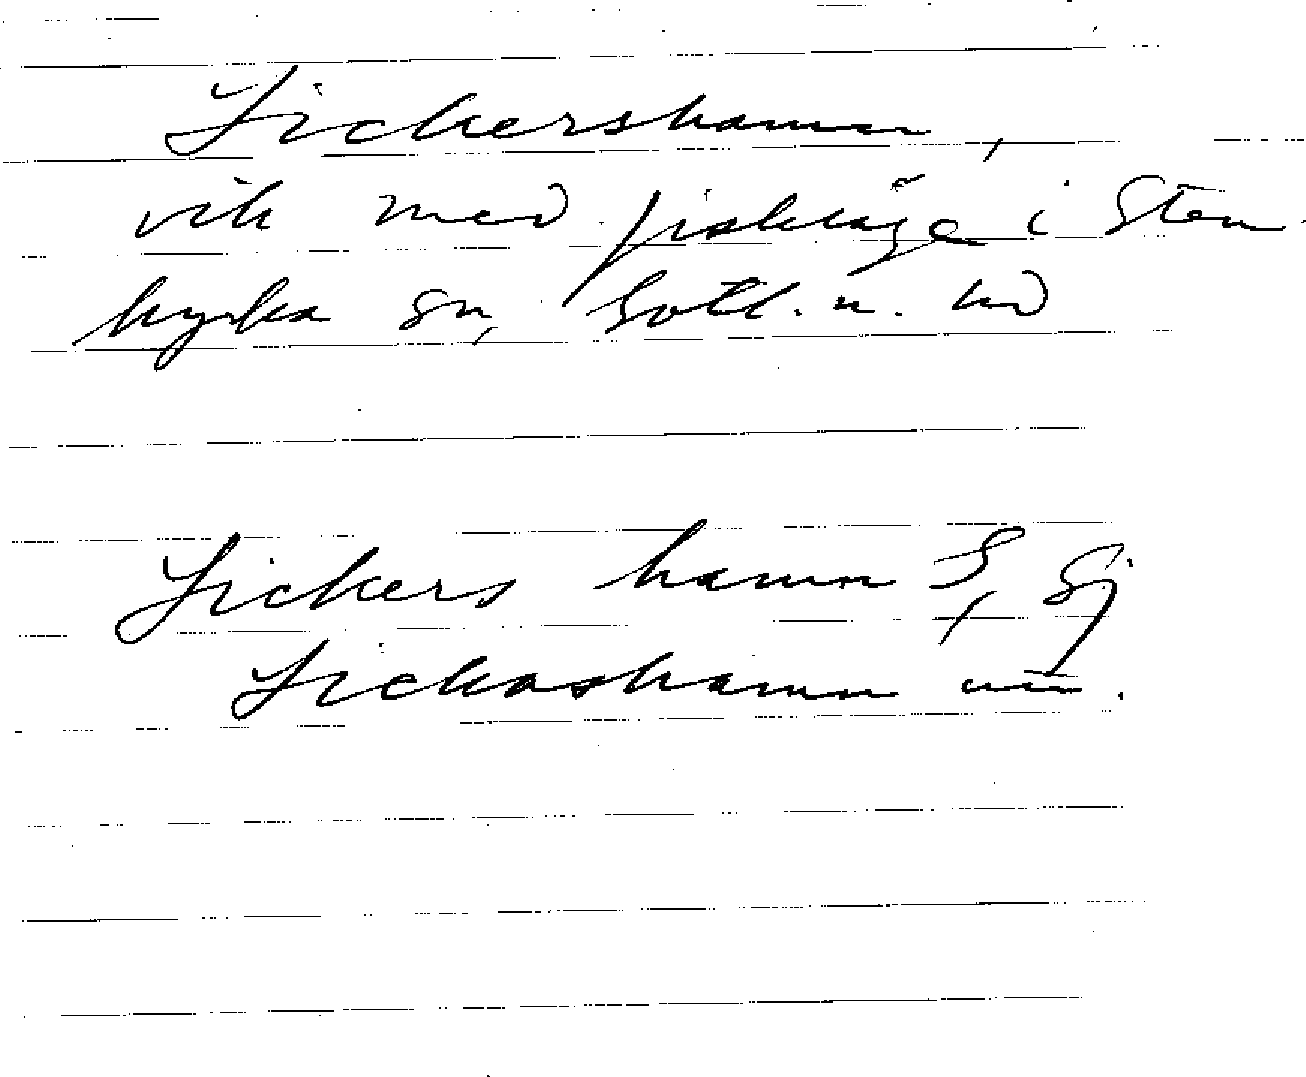 Lickershamn,
vik med fiskläge i Sten-
kyrka sn, Gotl. n. hd
Lickers hamn S, Sj
Lickashamn